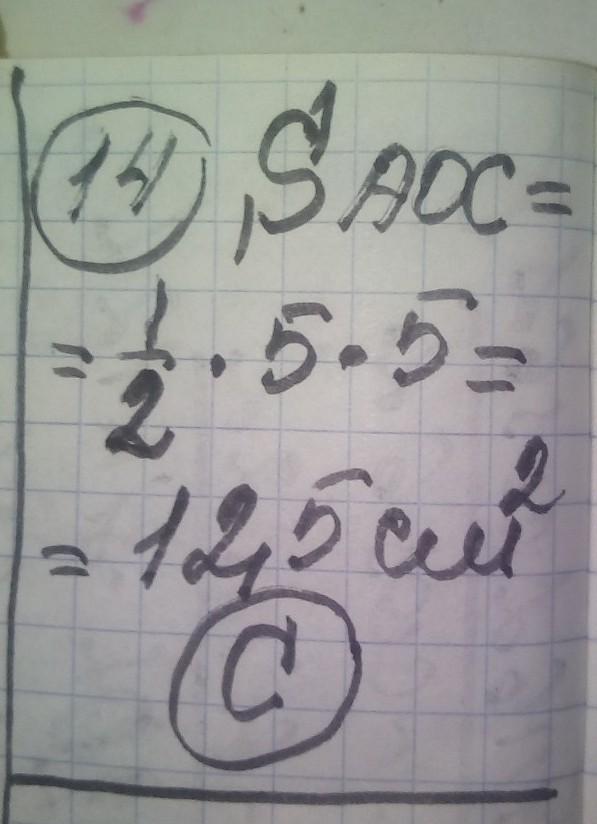 14 S AOC =
= 1/2 · 5 · 5 =
= 12,5 см²
C